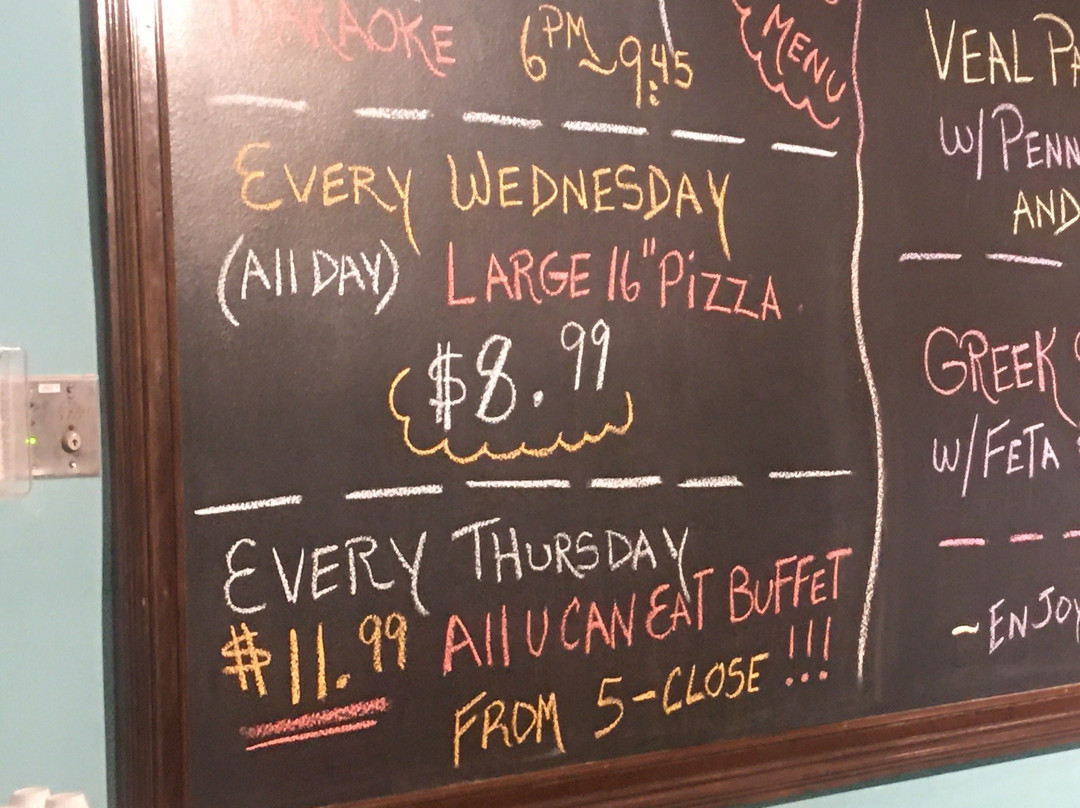 KARAOKE 6PM~9:45
MENU
EVERY WEDNESDAY
(All DAY) LARGE 16" PiZZA
$8.99
EVERY THURSDAY
$11.99 All U CAN EAT BUFFET
FROM 5-CLOSE !!!
VEAL
W/
AND
GREEK
W/FETA
~ENJOY